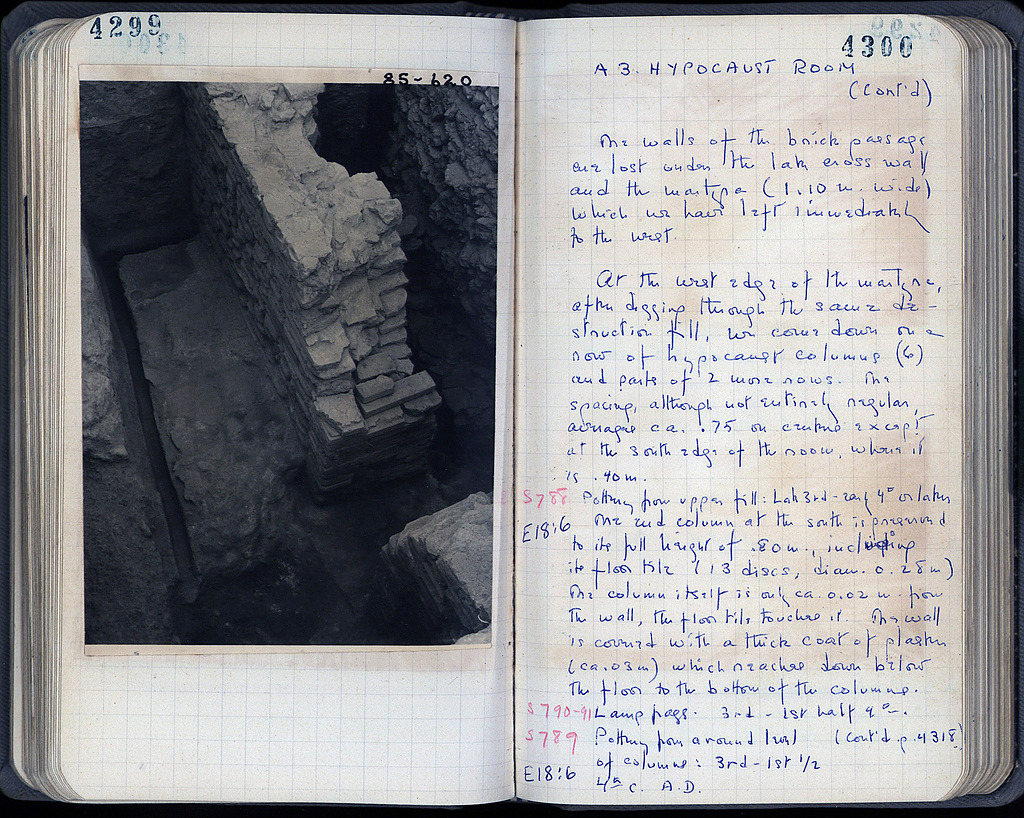 4299
85-620
4300
A 3. HYPOCAUST ROOM
(Cont'd)
The walls of the brick passage
are lost under the late cross wall
and the martyra (1.10 m. wide)
which we have left immediately
to the west.
At the west edge of the martyra,
after digging through the same de-
struction fill, we come down on a
row of hypocaust columns (6)
and parts of 2 more rows. The
spacing, although not entirely regular,
averages ca. .75 on centre except
at the south edge of the room, where it
is .40 m.
S788 Pottery from upper fill: Late 3rd - early 4th or later
E18:6
The end column at the south is preserved
to its full height of .80 m., including
its floor tile (13 discs, diam. 0.28 m)
The column itself is only ca. 0.02 m. from
the wall, the floor tile touches it. The wall
is covered with a thick coat of plaster
(ca. 03 m) which reaches down below
the floor to the bottom of the columns.
S790-91 Lamp frags. 3rd - 1st half 4th c.
S789 Pottery from around (cont'd p. 4318)
of columns: 3rd - 1st 1/2
E18:6
4th c. A.D.